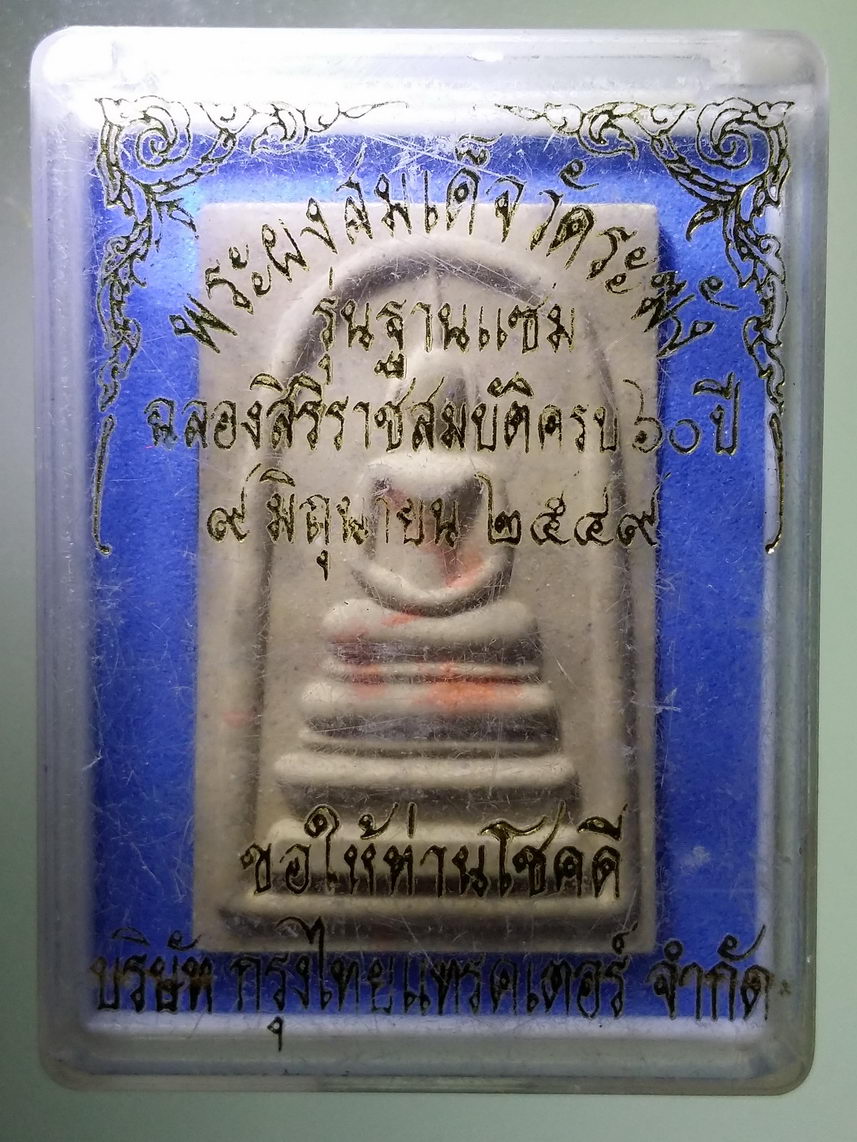 พระผงสมเด็จวัดระฆัง
รุ่นฐานแซม
ฉลองสิริราชสมบัติครบ ๖๐ ปี
๙ มิถุนายน ๒๕๔๙
ขอให้ท่านโชคดี
บริษัท กรุงไทยแทรคเตอร์ จำกัด